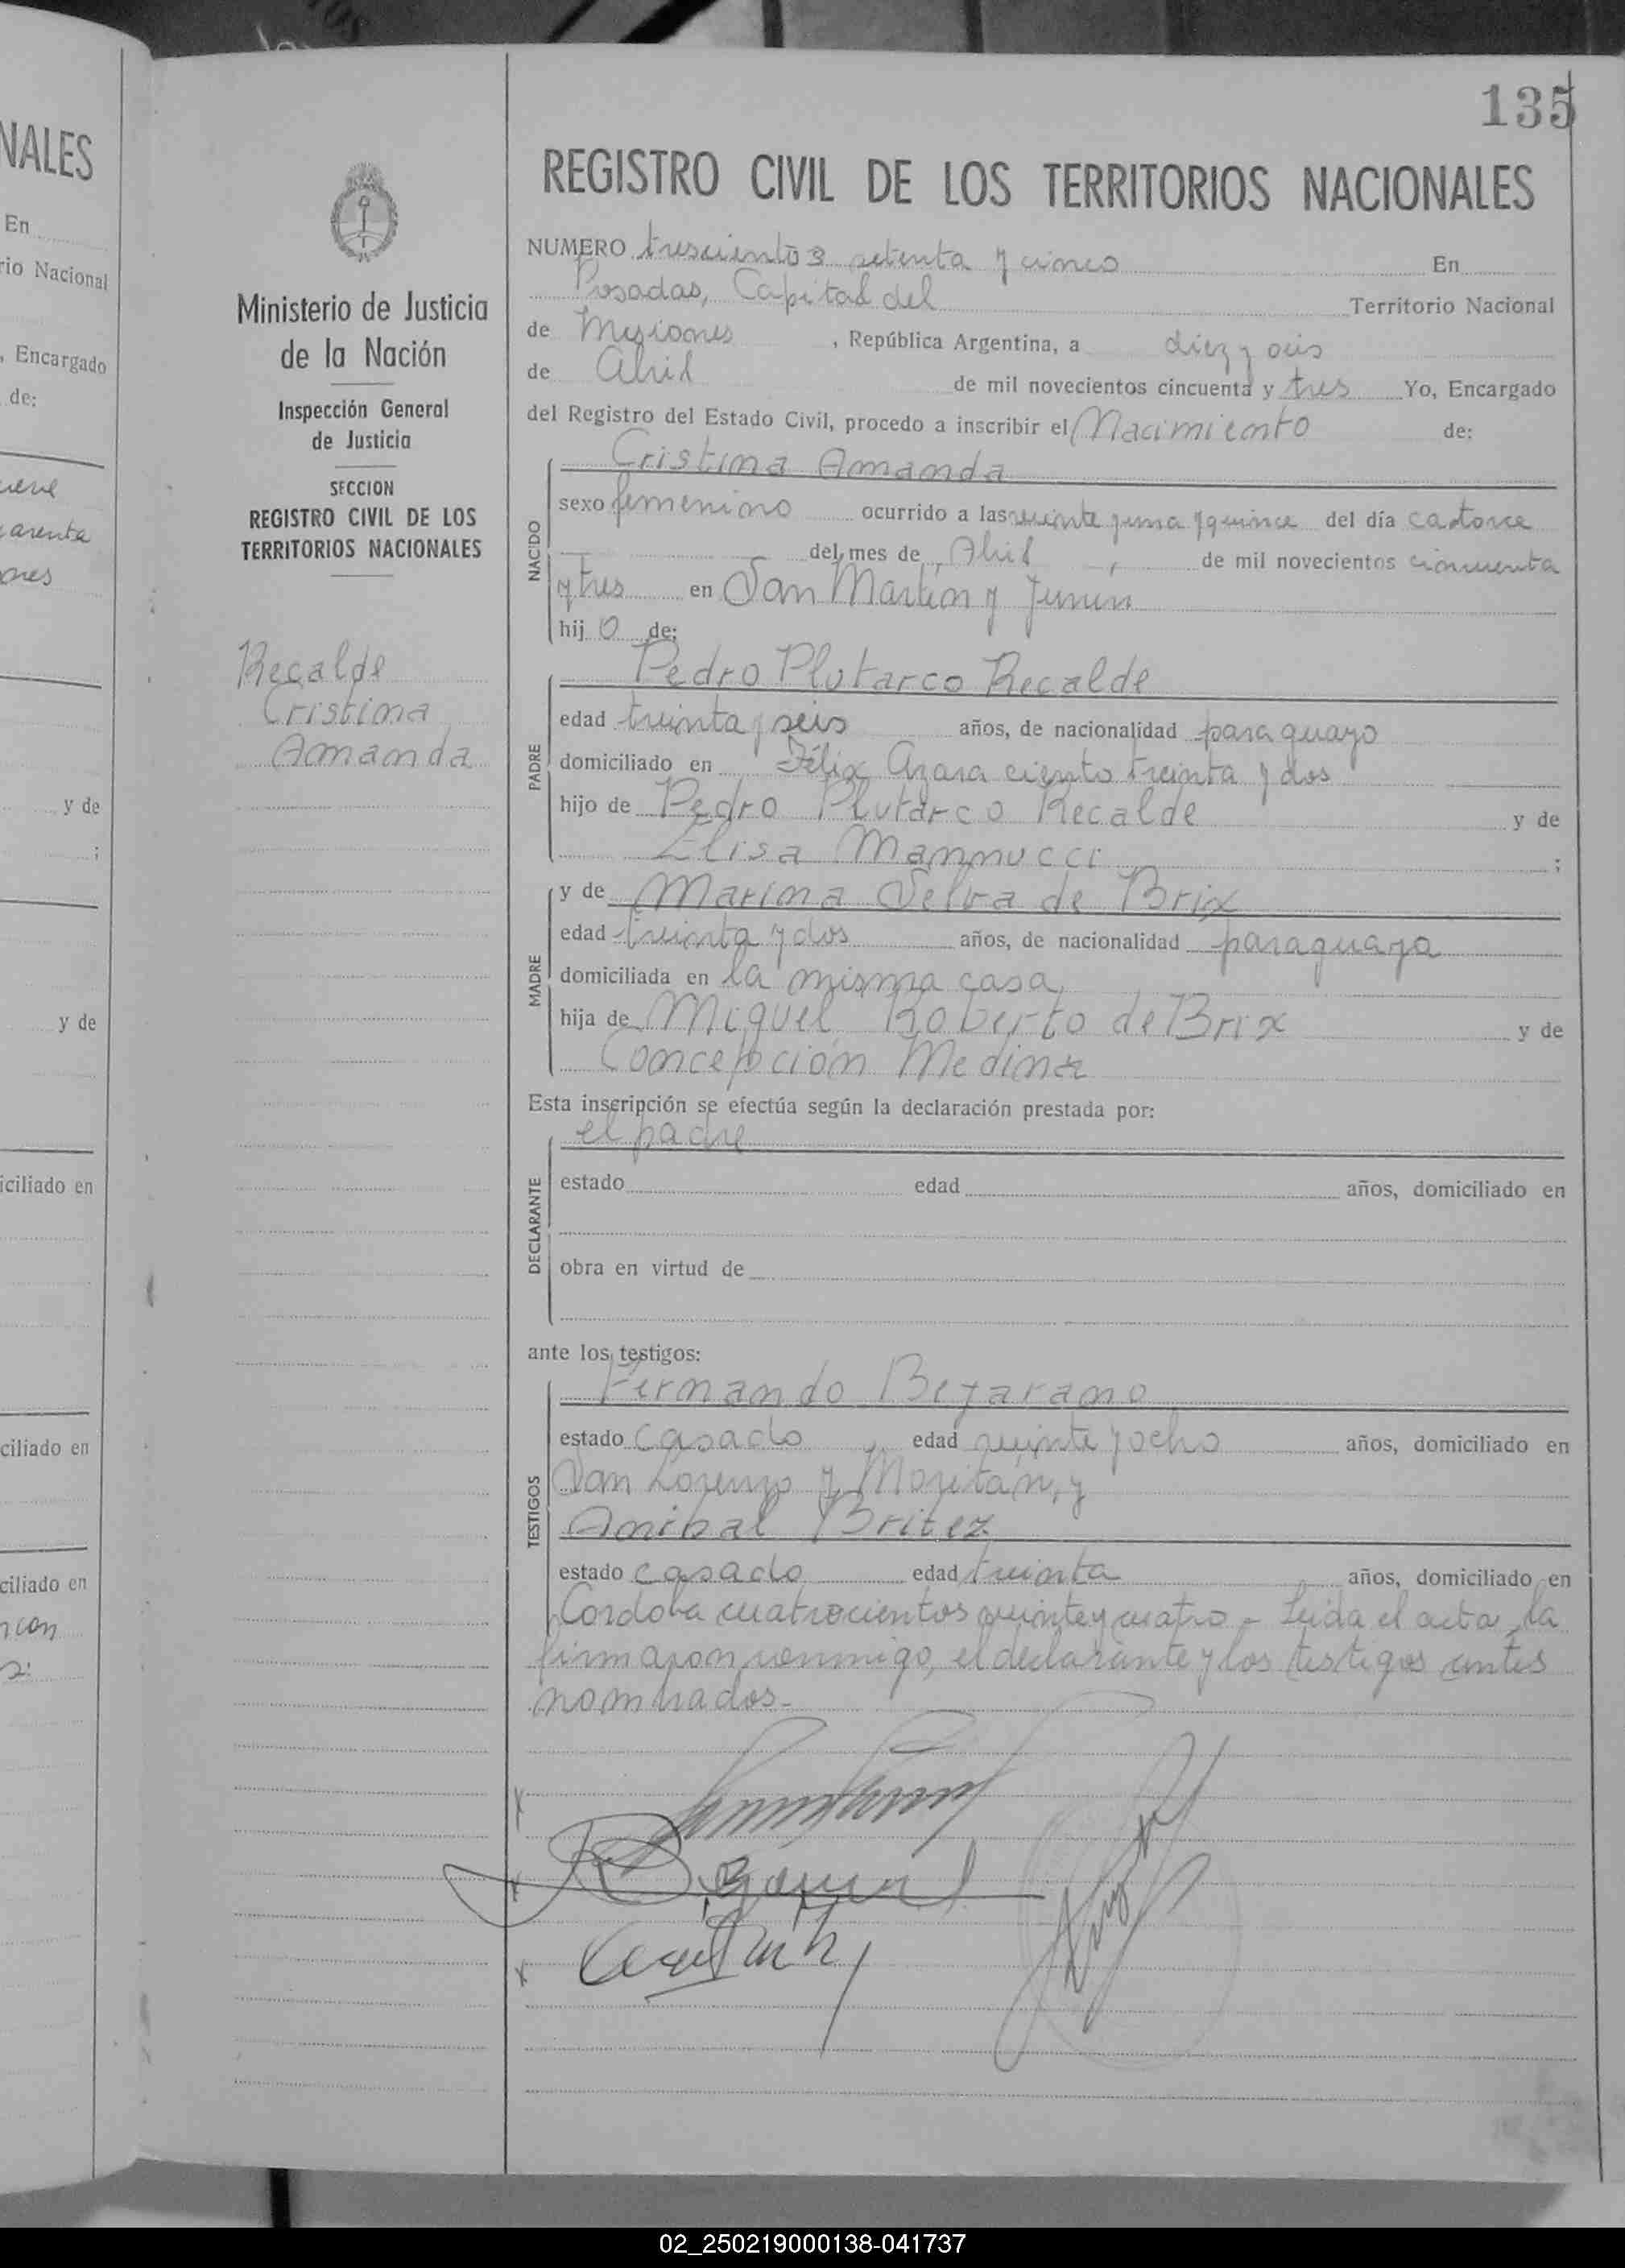 NALES
En
rio Nacional
, Encargado
de:
arenta
ones
y de
;
y de
iciliado en
ciliado en
ciliado en
135
REGISTRO CIVIL DE LOS TERRITORIOS NACIONALES
Ministerio de Justicia
de la Nación
Inspección General
de Justicia
SECCION
REGISTRO CIVIL DE LOS
TERRITORIOS NACIONALES
Recalde
Cristina
Amanda
NUMERO trescientos setenta y cinco En
Posadas, Capital del Territorio Nacional
de Misiones, República Argentina, a diez y seis
de Abril de mil novecientos cincuenta y tres Yo, Encargado
del Registro del Estado Civil, procedo a inscribir el Nacimiento de:
NACIDO
Cristina Amanda
sexo femenino ocurrido a las veinte y una y quince del día catorce
del mes de Abril, de mil novecientos cincuenta
y tres en San Martin y Junin
hijo de:
PADRE
Pedro Plutarco Recalde
edad treinta y seis años, de nacionalidad paraguayo
domiciliado en Félix Azara ciento treinta y dos
hijo de Pedro Plutarco Recalde y de
Elisa Mannucci ;
MADRE
y de Marina Selva de Brix
edad treinta y dos años, de nacionalidad paraguaya
domiciliada en la misma casa,
hija de Miguel Roberto de Brix y de
Concepción Medina
Esta inscripción se efectúa según la declaración prestada por:
DECLARANTE
el padre
estado edad años, domiciliado en
obra en virtud de
ante los testigos:
TESTIGOS
Fernando Bejarano
estado casado, edad veinte y ocho años, domiciliado en
San Lorenzo y Moritán, y
Anibal Britez
estado casado edad treinta años, domiciliado en
Cordoba cuatrocientos veinte y cuatro - Leida el acta, la
firmaron conmigo, el declarante y los testigos antes
nombrados.-
02_250219000138-041737